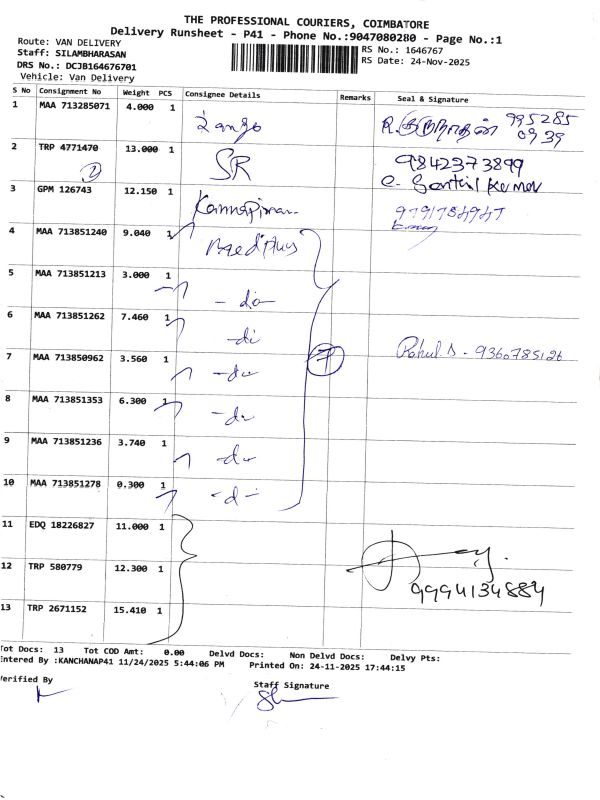 THE PROFESSIONAL COURIERS, COIMBATORE
Delivery Runsheet - P41 - Phone No.:9047080280 - Page No.:1
Route: VAN DELIVERY
Staff: SILAMBHARASAN
DRS No.: DCJB164676701
Vehicle: Van Delivery
RS No.: 1646767
RS Date: 24-Nov-2025
S No Consignment No Weight PCS Consignee Details Remarks Seal & Signature
1 MAA 713285071 4.000 1 995285
0939
2 TRP 4771470 13.000 1 SR 9842373899
2 e. Senthil Kumar
3 GPM 126743 12.150 1 9791784947
4 MAA 713851240 9.040 1 Medplus
5 MAA 713851213 3.000 1 - do -
6 MAA 713851262 7.460 1 - do
7 MAA 713850962 3.560 1 - do - 7 Rahul.S - 9360785126
8 MAA 713851353 6.300 1 - do
9 MAA 713851236 3.740 1 - do -
10 MAA 713851278 0.300 1 - d -
11 EDQ 18226827 11.000 1
12 TRP 580779 12.300 1 9994134884
13 TRP 2671152 15.410 1
Tot Docs: 13 Tot COD Amt: 0.00 Delvd Docs: Non Delvd Docs: Delvy Pts:
Entered By :KANCHANAP41 11/24/2025 5:44:06 PM Printed On: 24-11-2025 17:44:15
Verified By
Staff Signature